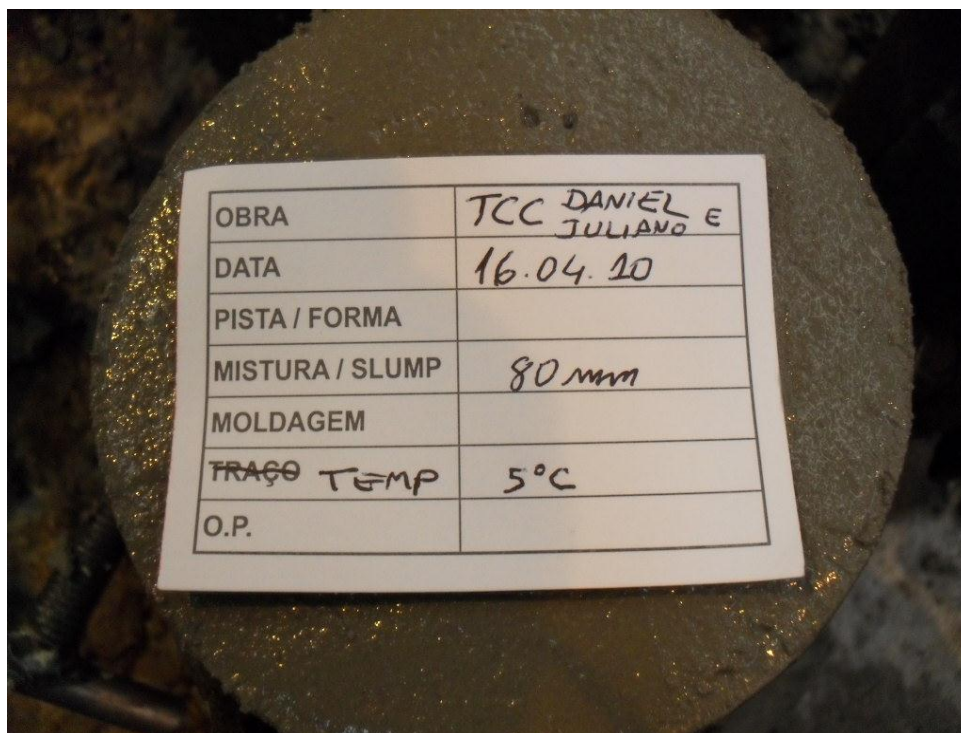 OBRA TCC DANIEL E
JULIANO
DATA 16.04.10
PISTA / FORMA
MISTURA / SLUMP 80 mm
MOLDAGEM
TRAÇO TEMP 5°C
O.P.